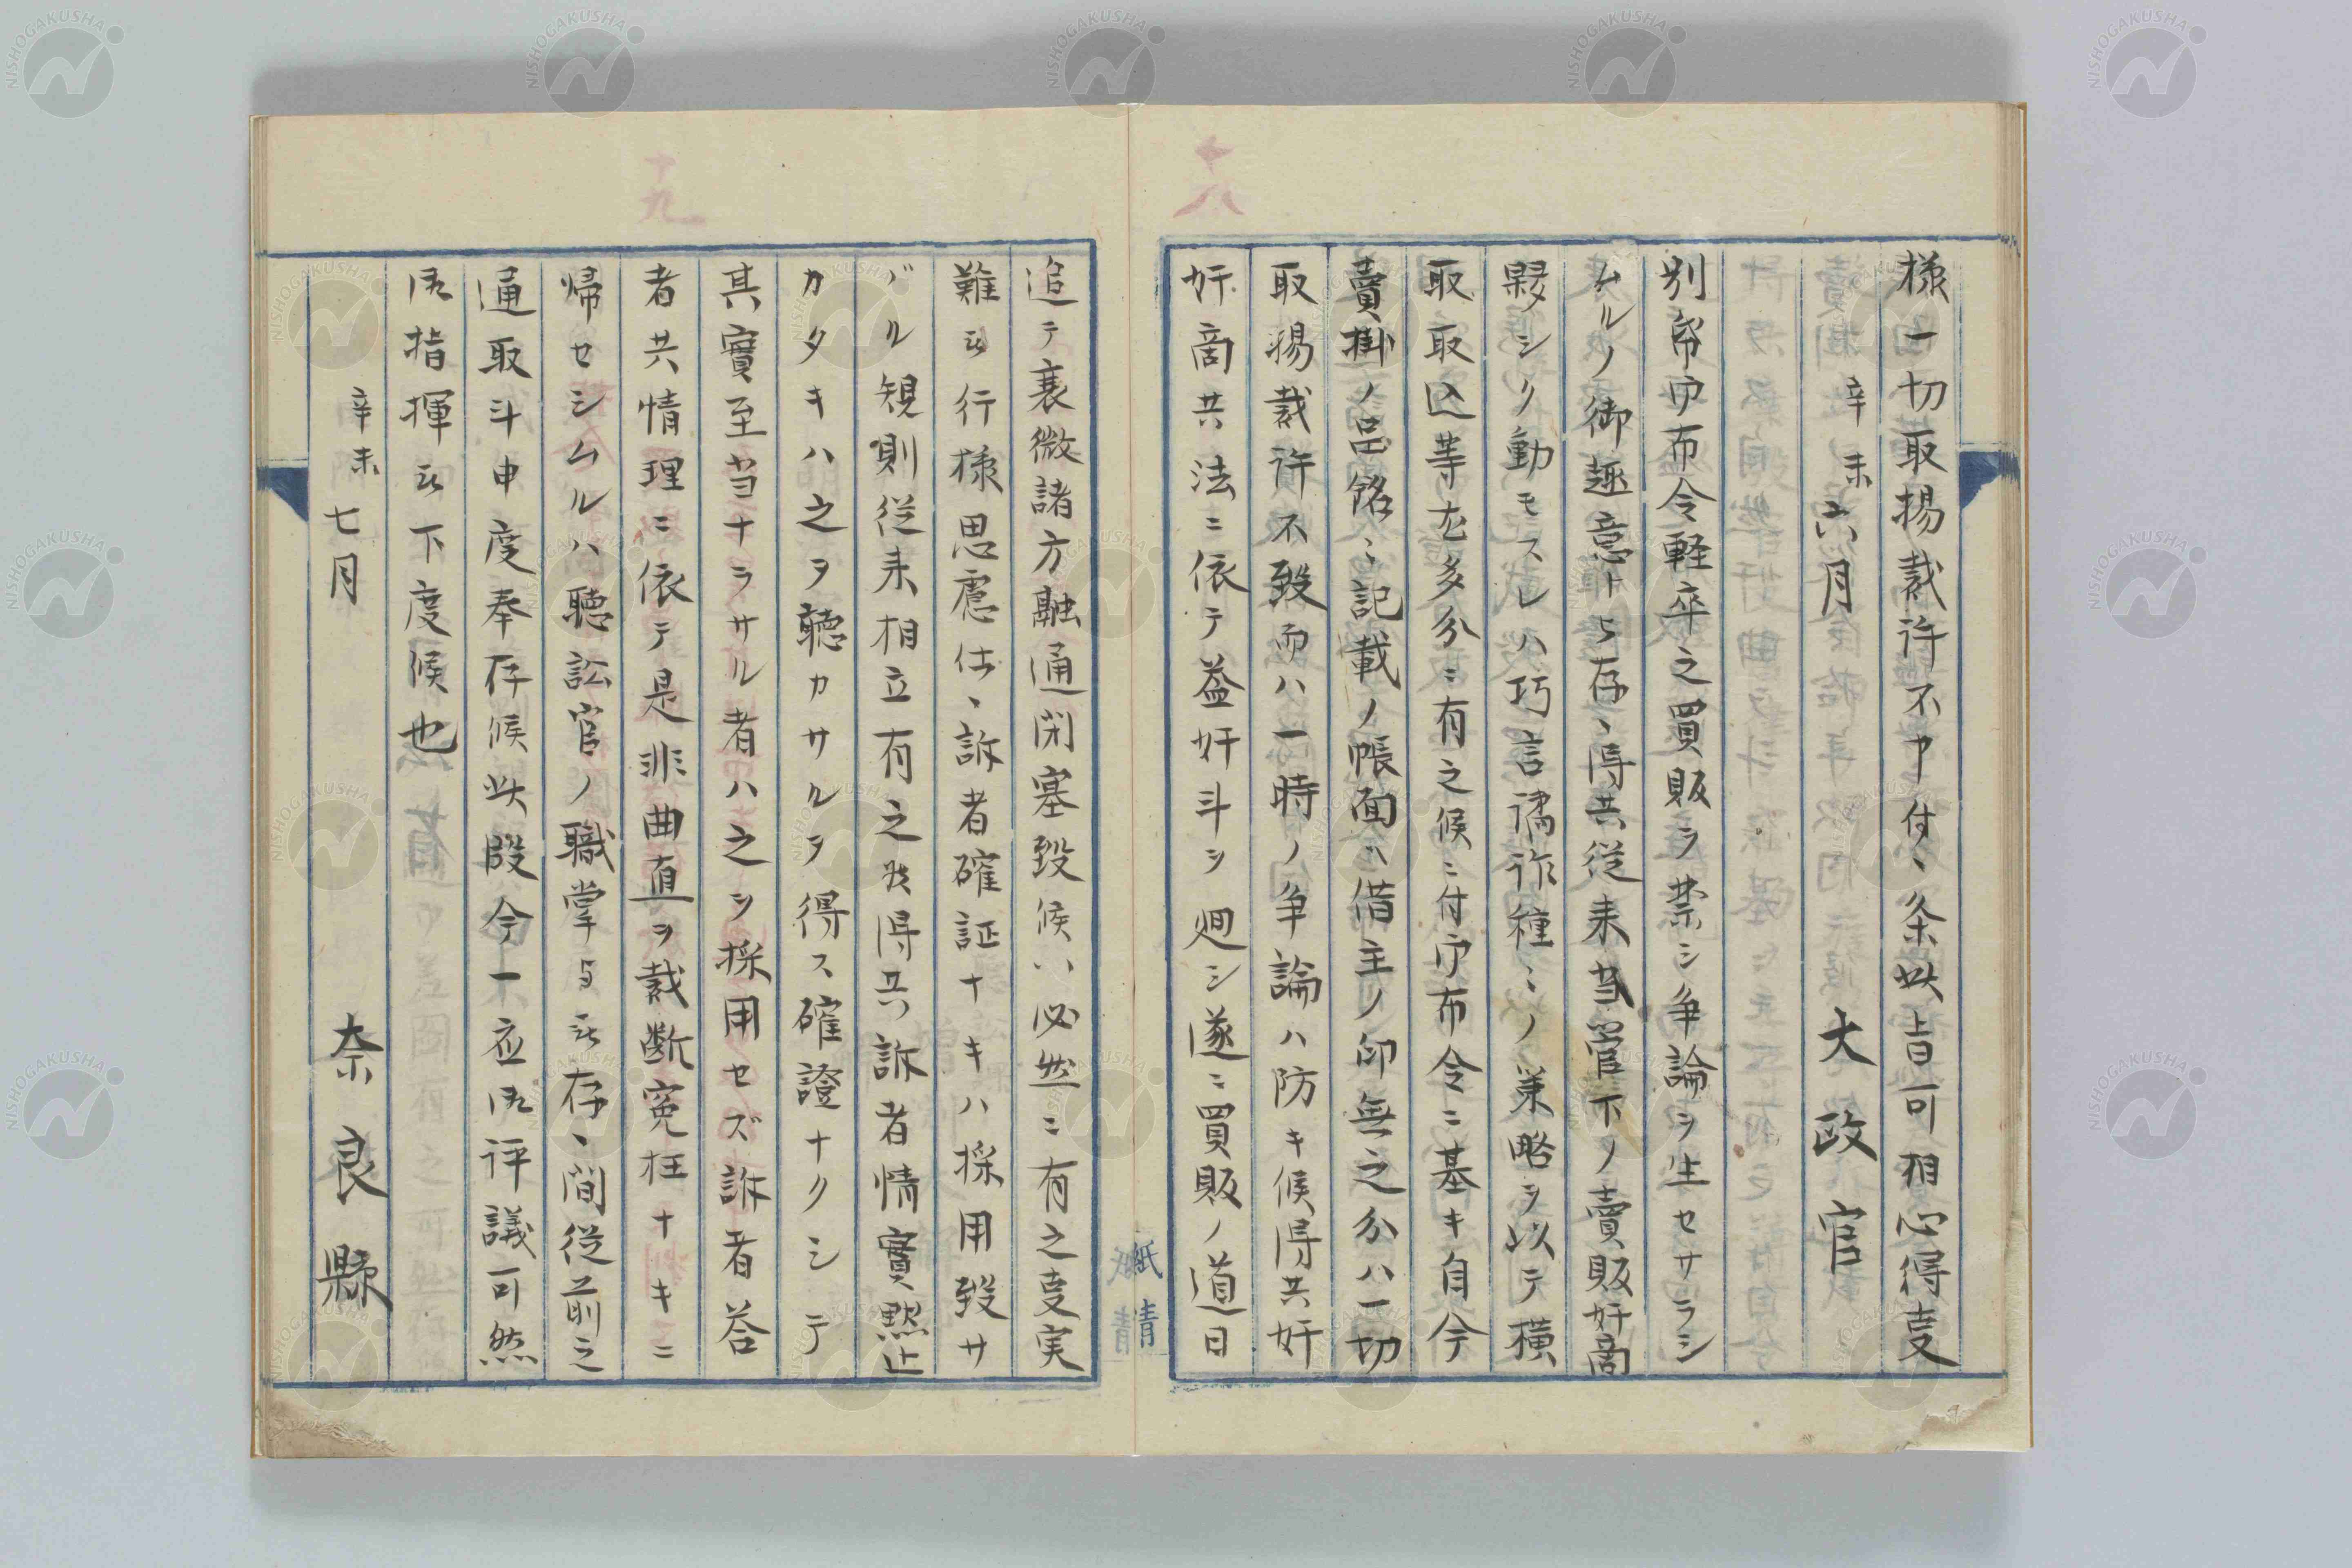 様一切取揚裁許不申付、条此旨可相心得叓
辛未六月 大政官
別帋御布令軽卒之買販ヲ禁シ争論ヲ生セサラシ
ムルノ御趣意ト与存、得共従来当管下ノ賣販奸商
夥タシク動モスレハ巧言譎詐種〻ノ策略ヲ以テ横
取取込等尤多分ニ有之候ニ付御布令ニ基キ自今
賣掛ノ品銘〻記載ノ帳面ハ借主ノ印無之分ハ一切
取揚裁許不致而ハ一時ノ争論ハ防キ候得共奸
奸商共法ニ依テ益奸斗ヲ廻シ遂ニ買販ノ道日
追テ衰微諸方融通閉塞致候ハ必然ニ有之叓実
難被行様思慮仕、訴者確証ナキハ採用致サ
バル規則従来相立有之候得共訴者情實黙止
カタキハ之ヲ聴カサルヲ得ス確證ナクシテ
其實至当ナラサル者ハ之ヲ採用セズ訴者答
者共情理ニ依テ是非曲直ヲ裁断寃枉ナキニ
帰セシムルハ聴訟官ノ職掌与被存、間従前之
通取斗申度奉存候此段今一応御評議可然
御指揮被下度候也
辛未七月 奈良縣
十八
十九
NISHOGAKUSHA